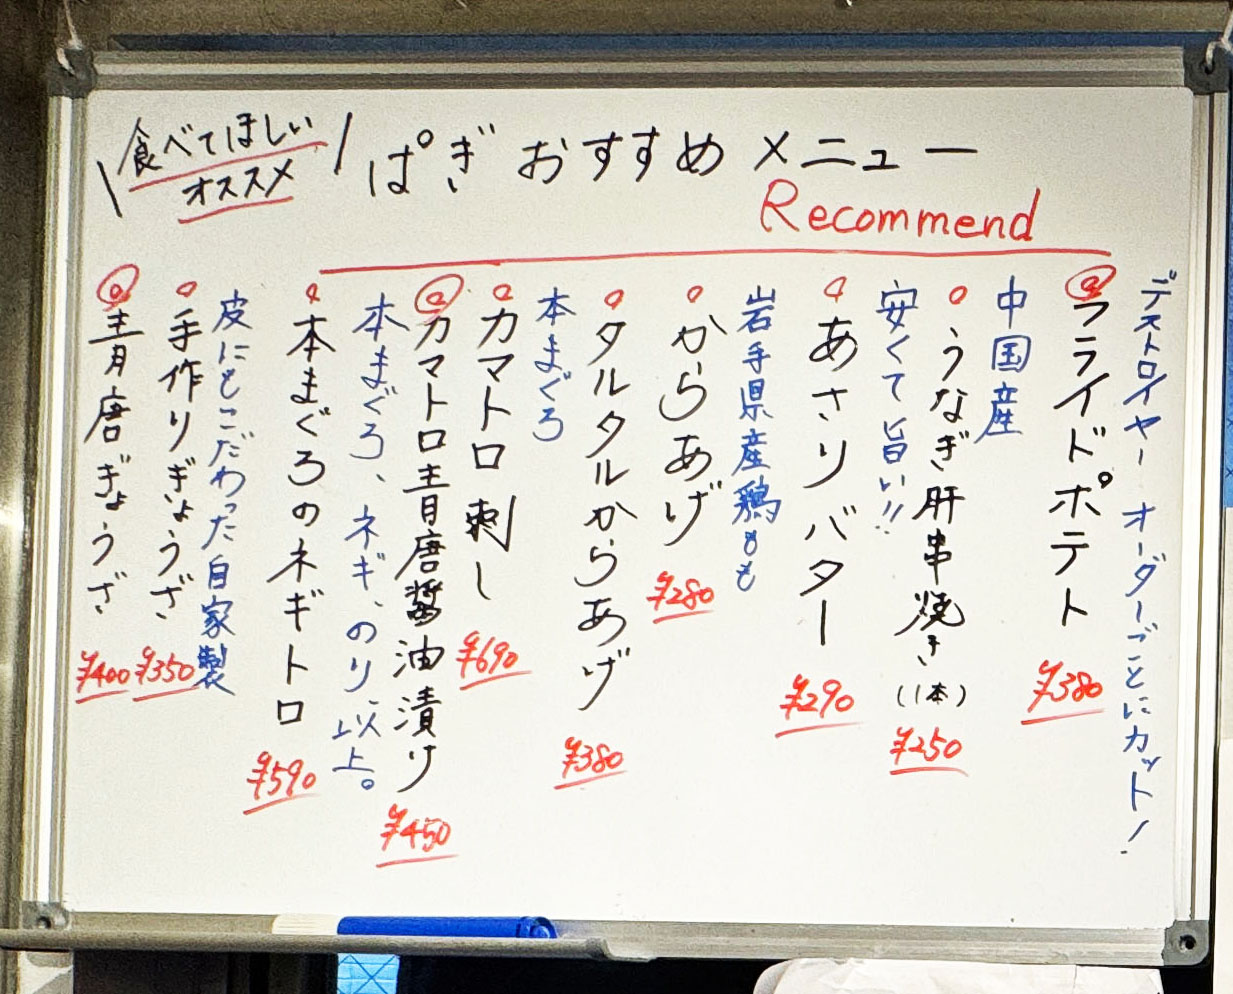 食べてほしい
オススメ
ぱぎおすすめメニュー
Recommend
デストロイヤー オーダーごとにカット!
フライドポテト ¥380
中国産
うなぎ肝串焼き(1本) ¥250
安くて旨い!!
あさりバター ¥290
岩手県産鶏もも
からあげ ¥280
タルタルからあげ ¥380
本まぐろ
カマトロ刺し ¥690
カマトロ青唐醤油漬け ¥450
本まぐろ、ネギ、のり、以上。
本まぐろのネギトロ ¥590
皮にもこだわった自家製
手作りぎょうざ ¥350
青唐ぎょうざ ¥400